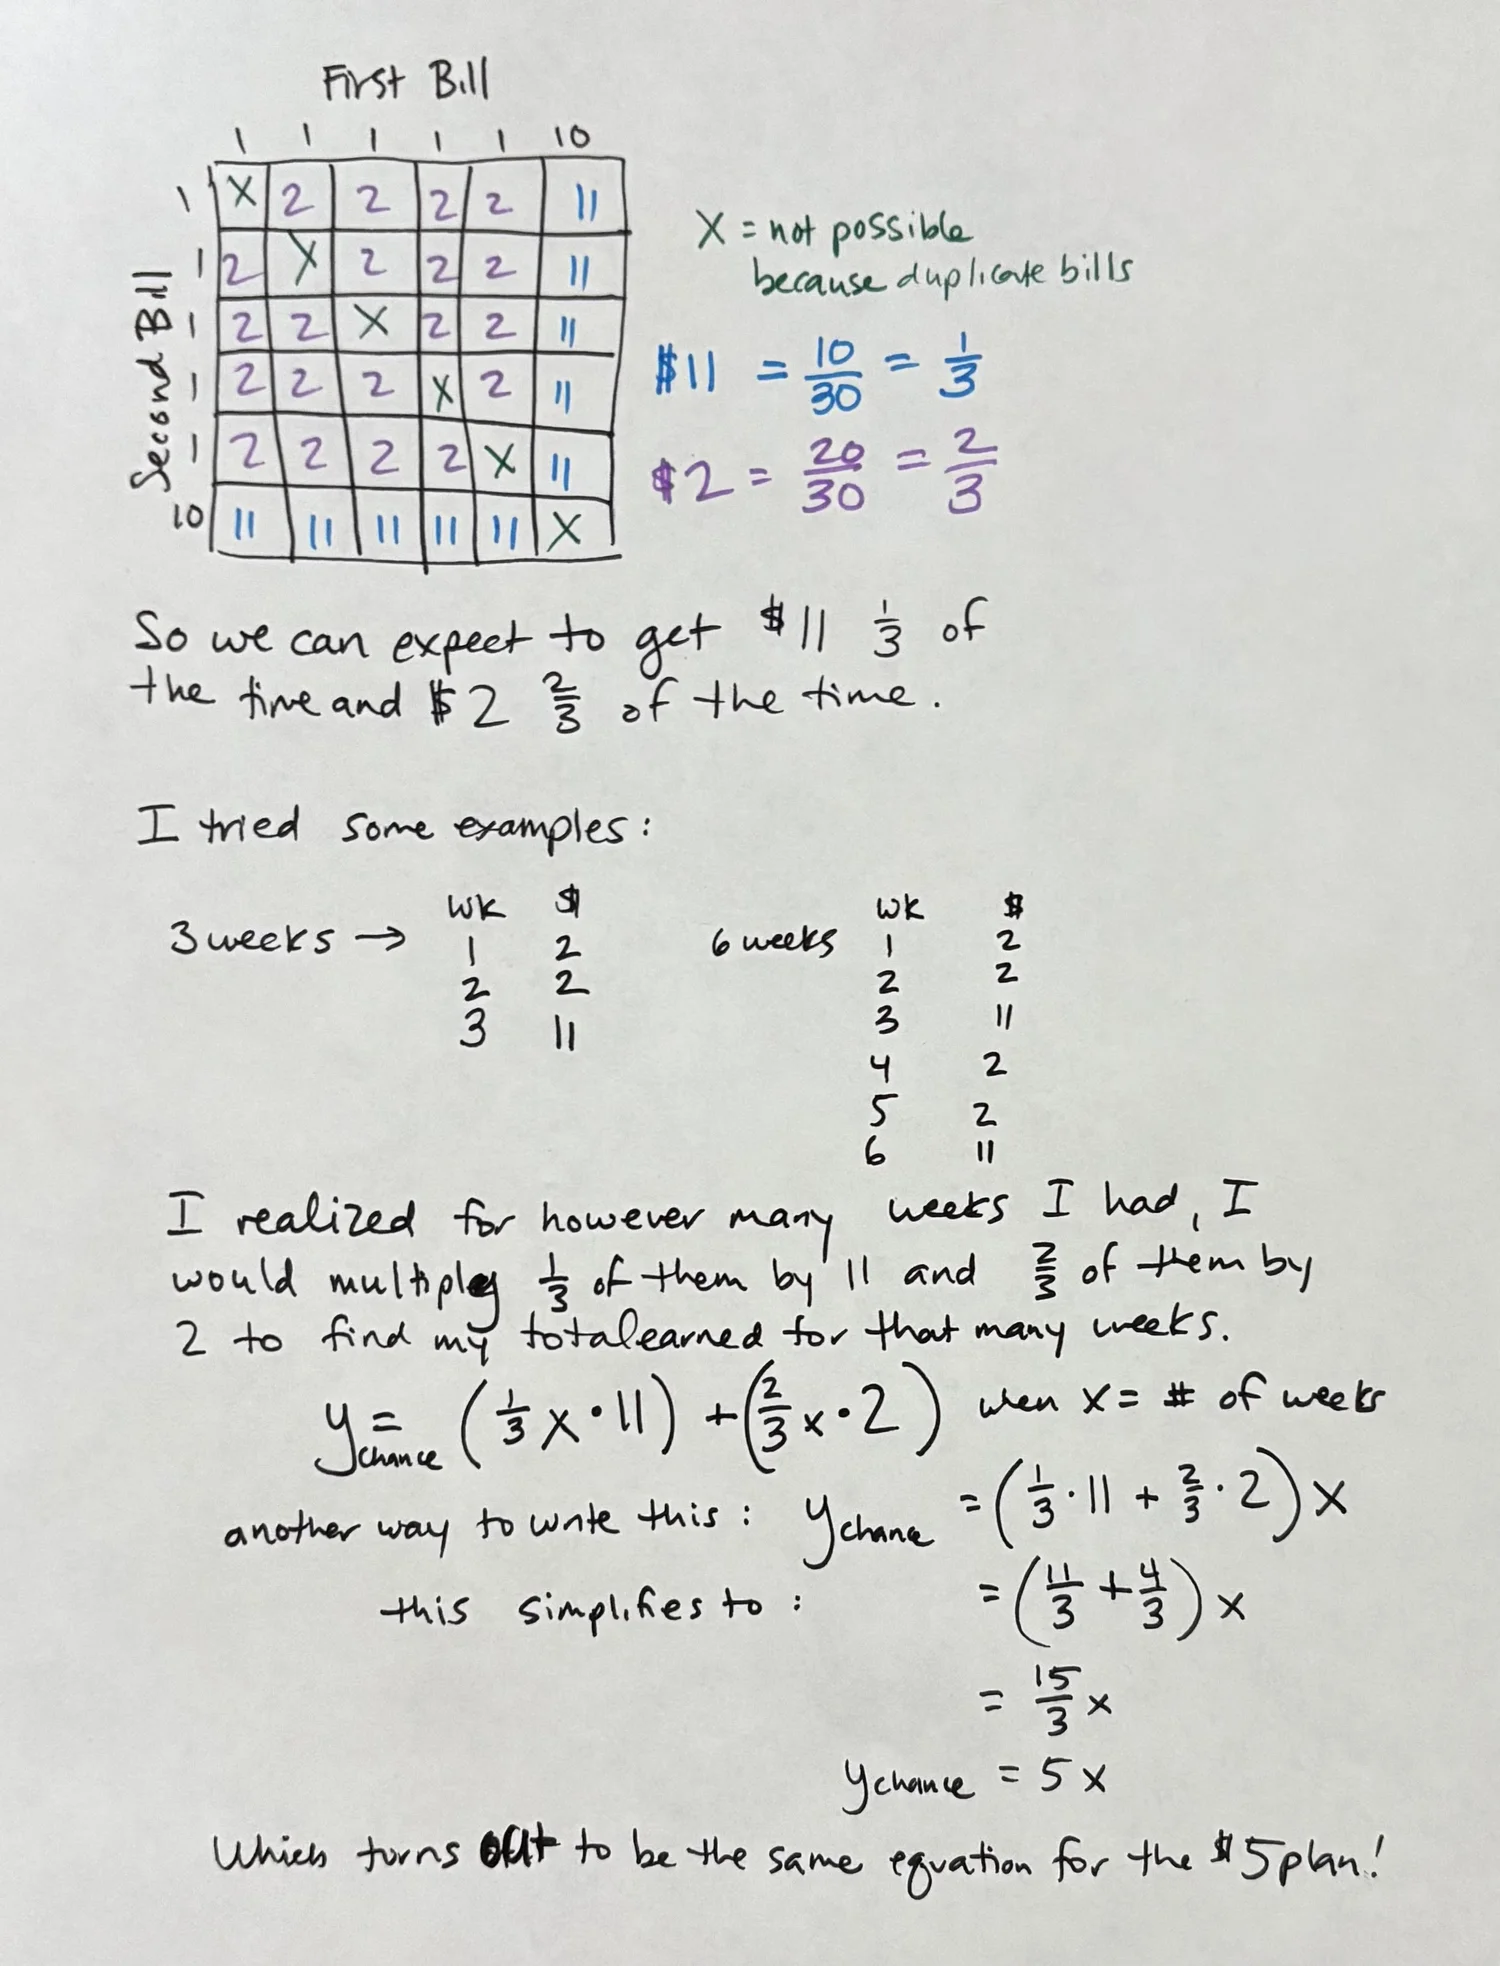 First Bill
1 1 1 1 1 10
Second Bill
1 X 2 2 2 2 11
1 2 X 2 2 2 11
1 2 2 X 2 2 11
1 2 2 2 X 2 11
1 2 2 2 2 X 11
10 11 11 11 11 11 X
X = not possible
because duplicate bills
$11 = 10/30 = 1/3
$2 = 20/30 = 2/3
So we can expect to get $11 1/3 of
the time and $2 2/3 of the time.
I tried some examples:
3 weeks →
wk $
1 2
2 2
3 11
6 weeks
wk $
1 2
2 2
3 11
4 2
5 2
6 11
I realized for however many weeks I had, I
would multiply 1/3 of them by 11 and 2/3 of them by
2 to find my total earned for that many weeks.
y chance = (1/3 x • 11) + (2/3 x • 2) when x = # of weeks
another way to write this: y chance = (1/3 · 11 + 2/3 · 2) x
this simplifies to: = (11/3 + 4/3) x
= 15/3 x
y chance = 5x
Which turns out to be the same equation for the $5 plan!